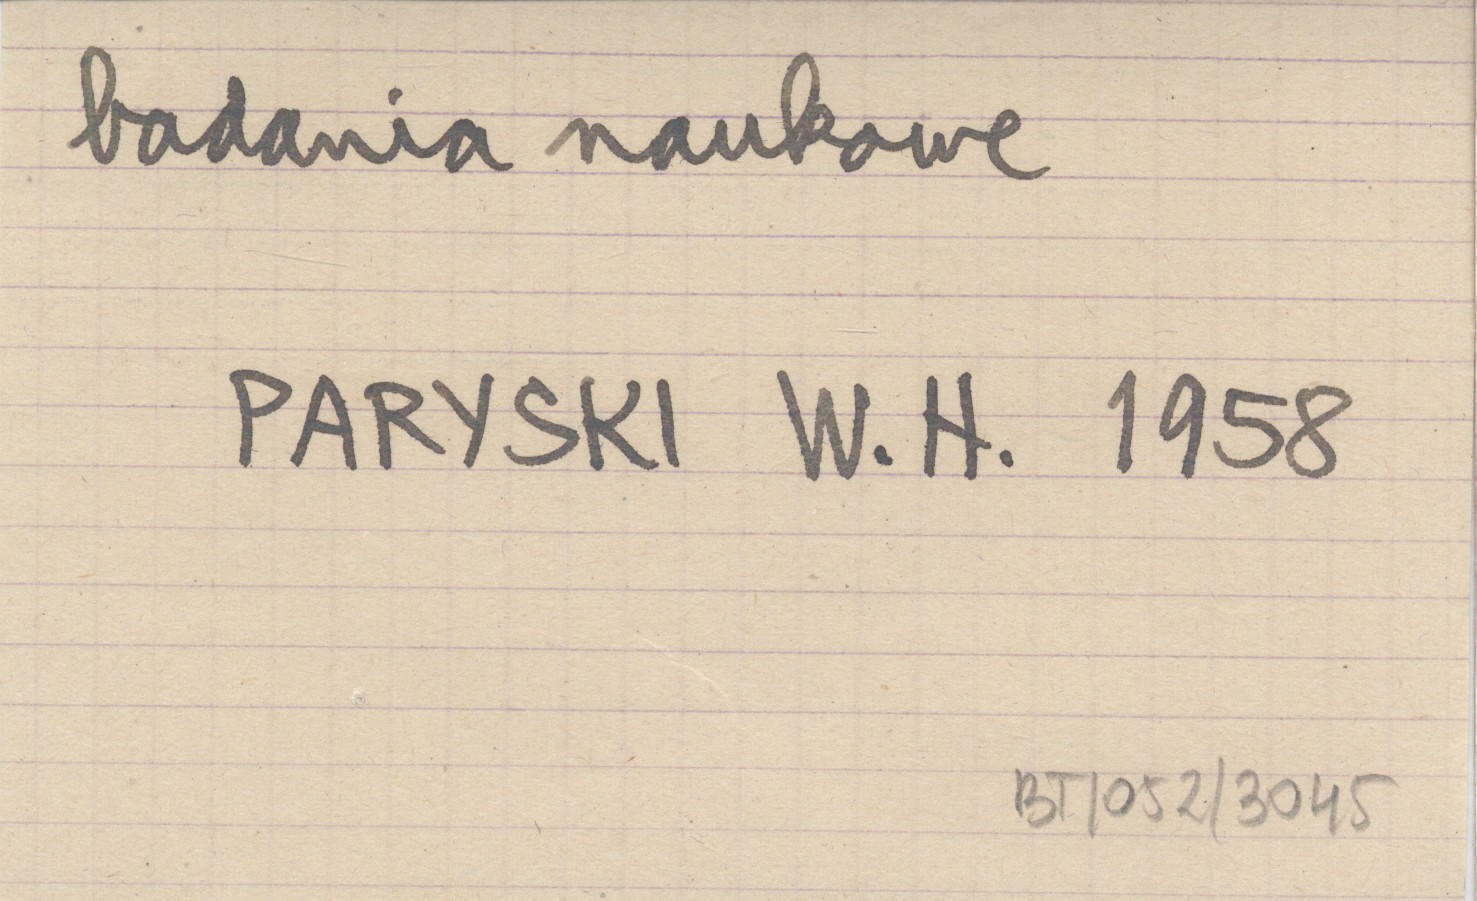 badania naukowe
PARYSKI W.H. 1958
BT/052/3045